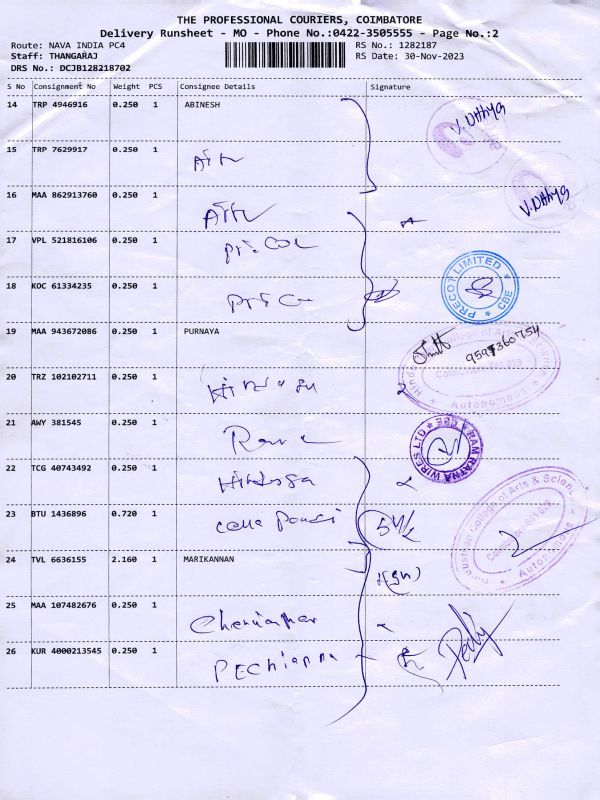 THE PROFESSIONAL COURIERS, COIMBATORE
Delivery Runsheet - MO - Phone No.:0422-3505555 - Page No.:2
Route: NAVA INDIA PC4 RS No.: 1282187
Staff: THANGARAJ RS Date: 30-Nov-2023
DRS No.: DCJB128218702
S No Consignment No Weight PCS Consignee Details Signature
14 TRP 4946916 0.250 1 ABINESH V.DHAYA
15 TRP 7629917 0.250 1
16 MAA 862913760 0.250 1 V.DHAYA
17 VPL 521816106 0.250 1 Pricol
18 KOC 61334235 0.250 1 PRECOT LIMITED CBE
19 MAA 943672086 0.250 1 PURNAYA
20 TRZ 102102711 0.250 1 Autonomous
21 AWY 381545 0.250 1 RAM RATNA WIRES LTD CBE
22 TCG 40743492 0.250 1
23 BTU 1436896 0.720 1 College of Arts & Science
24 TVL 6636155 2.160 1 MARIKANNAN Autonomous
25 MAA 107482676 0.250 1
26 KUR 4000213545 0.250 1